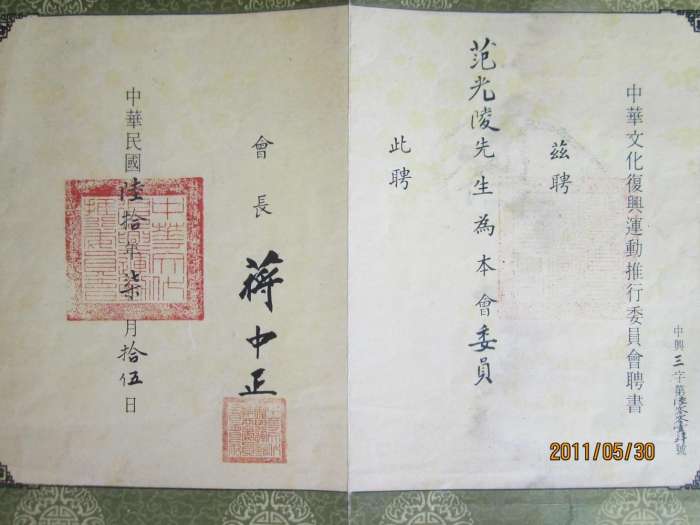 中華文化復興運動推行委員會聘書
中興三字第陸零零壹肆號
茲聘
范光陵先生為本會委員
此聘
會長 蔣中正
中華民國陸拾年柒月拾伍日
2011/05/30